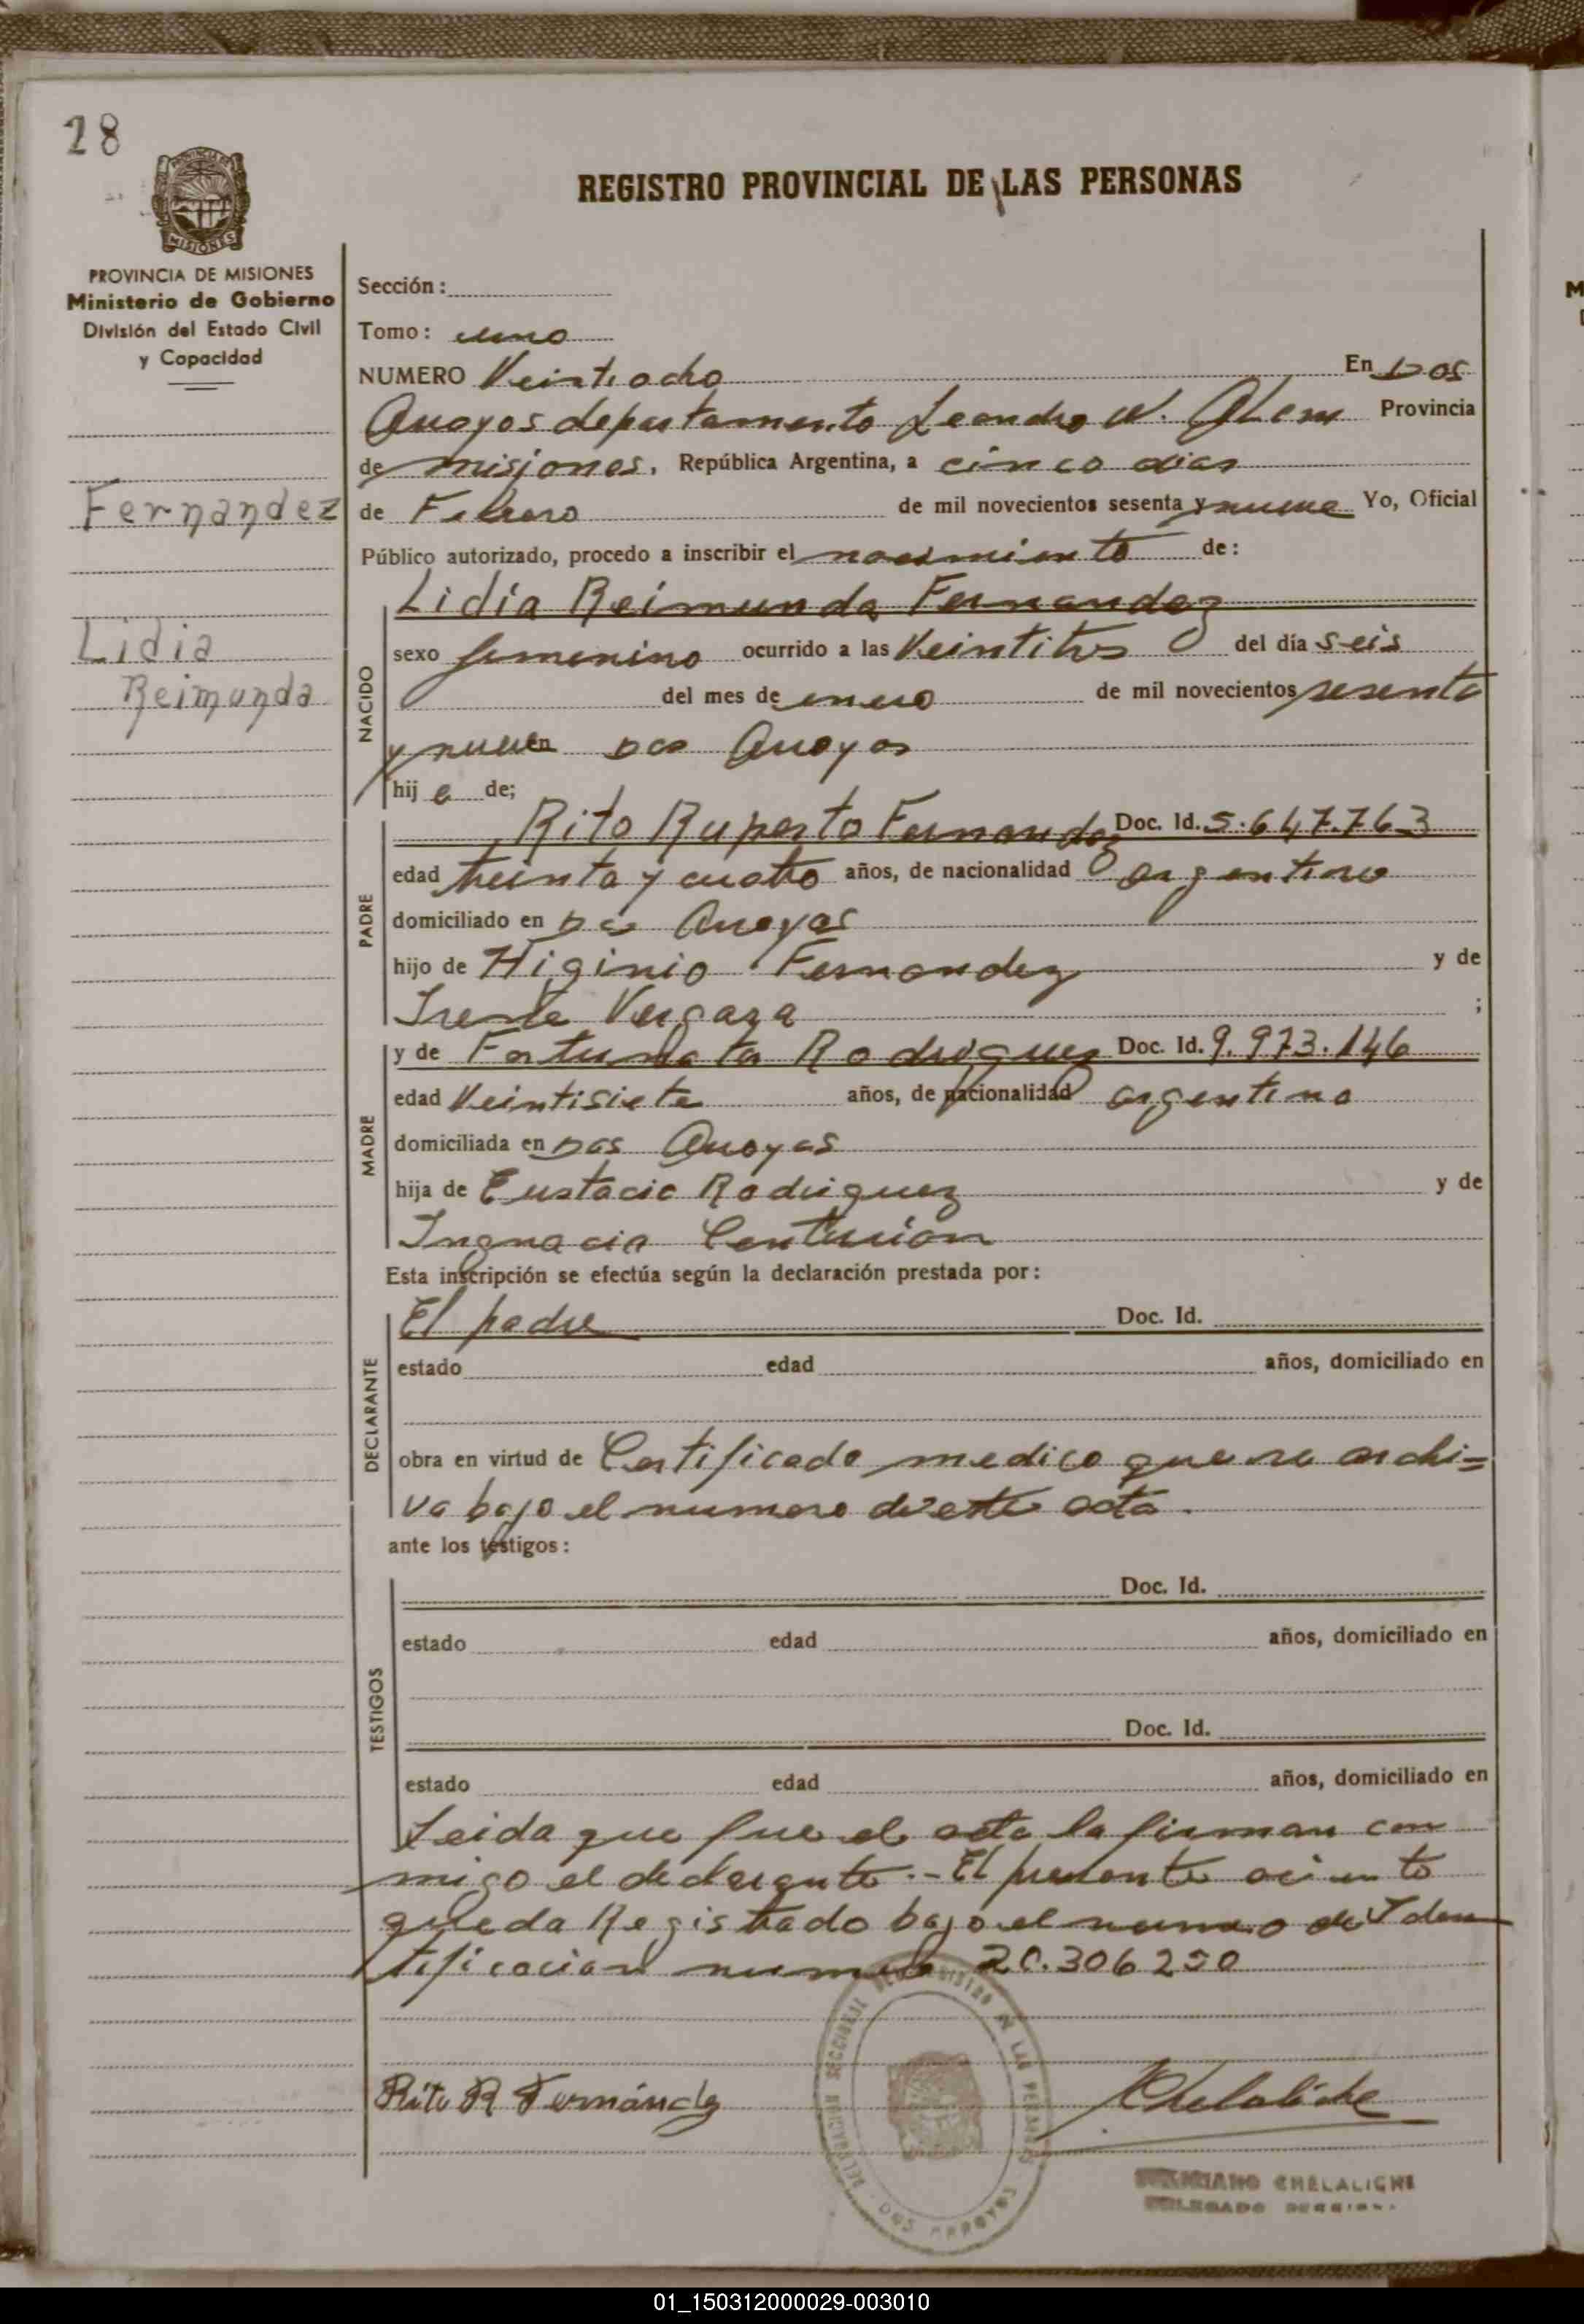 28
REGISTRO PROVINCIAL DE LAS PERSONAS
PROVINCIA DE
MISIONES
PROVINCIA DE MISIONES
Ministerio de Gobierno
División del Estado Civil
y Capacidad
Fernandez
Lidia
Reimunda
Sección:
Tomo: uno
NUMERO Veintiocho En Dos
Arroyos departamento Leandro N. Alem Provincia
de misiones, República Argentina, a cinco dias
de Febrero de mil novecientos sesenta y nueve Yo, Oficial
Público autorizado, procedo a inscribir el nacimiento de:
NACIDO
Lidia Reimunda Fernandez
sexo femenino ocurrido a las Veintitres del día seis
del mes de enero de mil novecientos sesenta
y nueve en Dos Arroyos
hij a de;
PADRE
Rito Ruperto Fernandez Doc. Id. 5.647.763
edad treinta y cuatro años, de nacionalidad argentino
domiciliado en Dos Arroyos
hijo de Higinio Fernandez y de
Vergara ;
MADRE
y de Fortunata Rodriguez Doc. Id. 9.973.146
edad Veintisiete años, de nacionalidad argentina
domiciliada en Dos Arroyos
hija de Eustacio Rodriguez y de
Ingnacia Centurion
Esta inscripción se efectúa según la declaración prestada por:
DECLARANTE
El padre Doc. Id.
estado edad años, domiciliado en
obra en virtud de Certificado medico que se archi=
va bajo el numero de este acta.
ante los testigos:
TESTIGOS
Doc. Id.
estado edad años, domiciliado en
Doc. Id.
estado edad años, domiciliado en
Leida que fue el acta la firman con
migo el declarante.- El presente
queda Registrado bajo el numero de Iden
tificacion numero 20.306250
Rito R Fernández
Chelaliche
DOS ARROYOS
CHELALICHE
DELEGADO
01_150312000029-003010